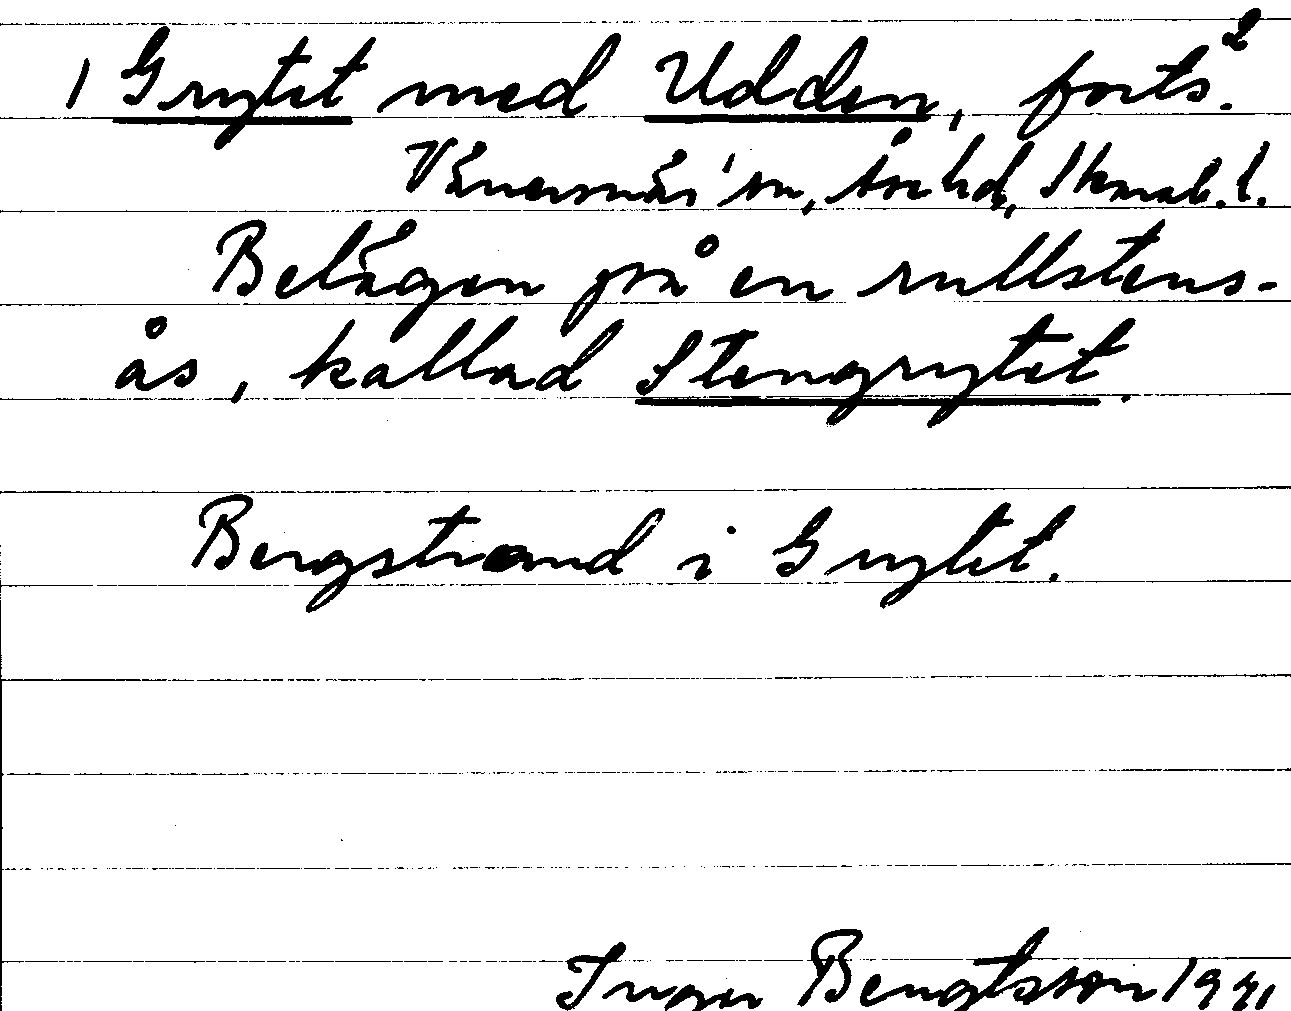 1 Grytet med Udden, forts.2
Vänersnäs sn, Åse hd, Skarab.l.
Belägen på en rullstens-
ås, kallad Stengrytet.
Bergstrand i Grytet.
Inger Bengtsson 1941